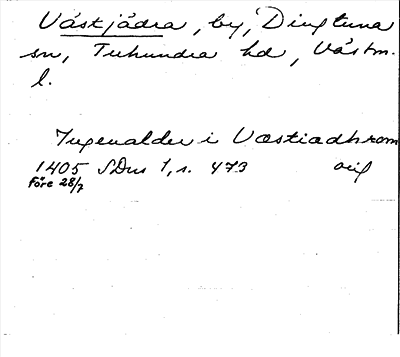 Västjädra, by, Dingtuna
sn, Tuhundra hd, Västm.
l.
Ingenalder i Væstiædhrom
1405 SDns 1, s. 473 orig
Före 28/7